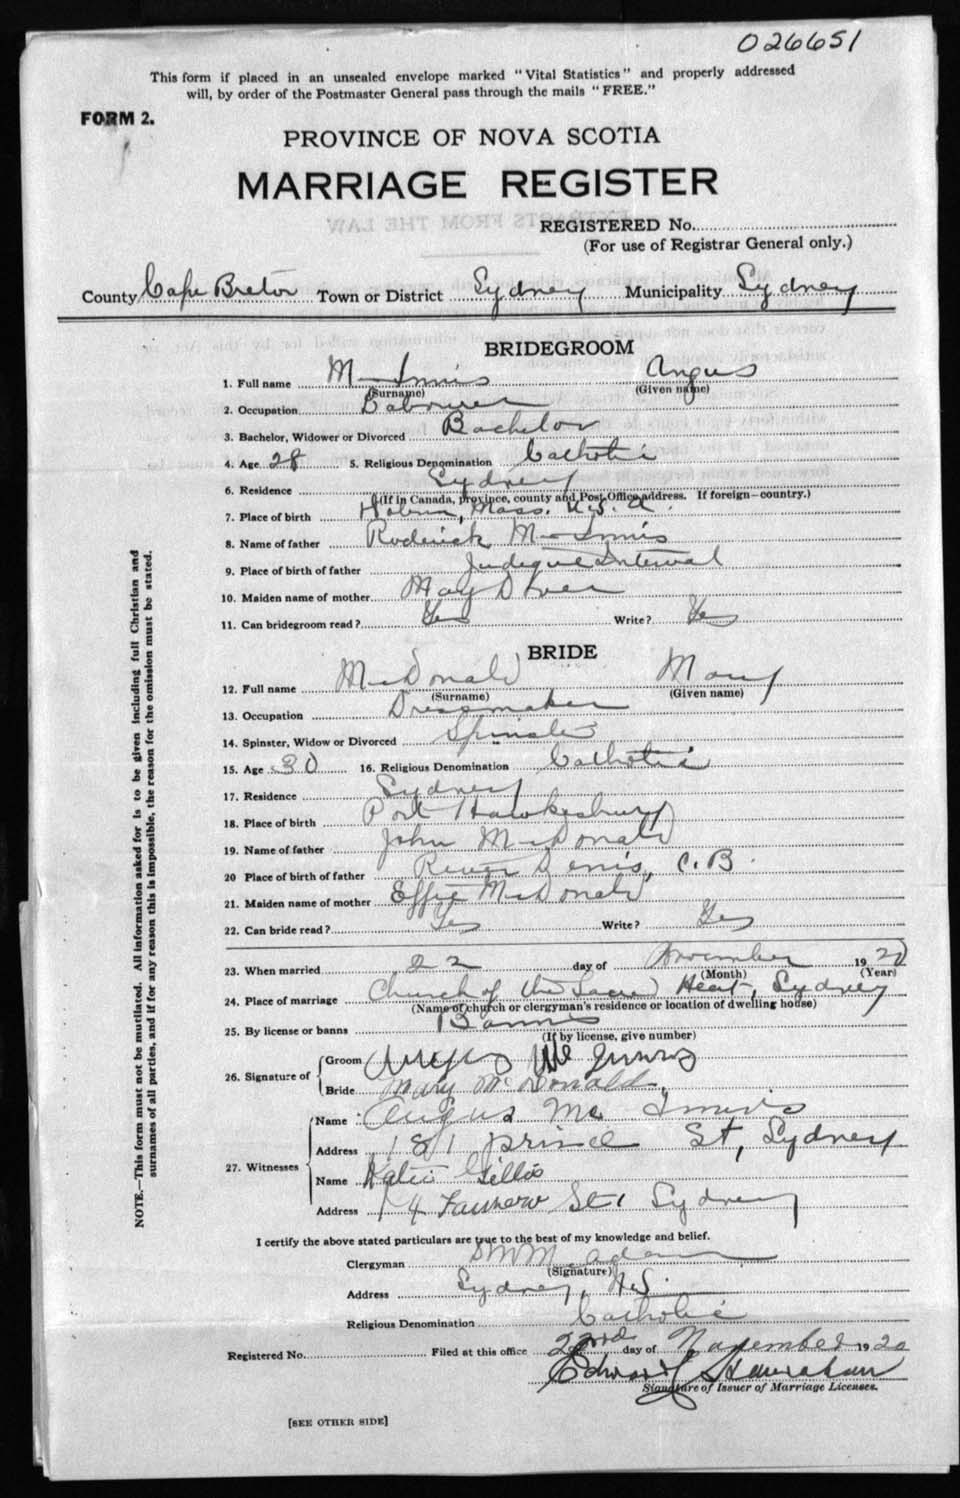 026651
This form if placed in an unsealed envelope marked "Vital Statistics" and properly addressed
will, by order of the Postmaster General pass through the mails "FREE."
FORM 2.
PROVINCE OF NOVA SCOTIA
MARRIAGE REGISTER
EXTRACTS FROM THE LAW
REGISTERED No.
(For use of Registrar General only.)
County Cape Breton Town or District Sydney Municipality Sydney
BRIDEGROOM
1. Full name McInnis Angus
(Surname) (Given name)
2. Occupation Labourer
3. Bachelor, Widower or Divorced Bachelor
4. Age 28 5. Religious Denomination Catholic
6. Residence Sydney
(If in Canada, province, county and Post Office address. If foreign—country.)
7. Place of birth Woburn, Mass. U.S.A.
8. Name of father Roderick McInnis
9. Place of birth of father Judique Interval
10. Maiden name of mother May
11. Can bridegroom read? Yes Write? Yes
BRIDE
12. Full name McDonald Mary
(Surname) (Given name)
13. Occupation Dressmaker
14. Spinster, Widow or Divorced Spinster
15. Age 30 16. Religious Denomination Catholic
17. Residence Sydney
18. Place of birth Port Hawkesbury
19. Name of father John McDonald
20 Place of birth of father River Denis, C.B.
21. Maiden name of mother Effie McDonald
22. Can bride read? Yes Write? Yes
23. When married 22 day of November 1920
(Month) (Year)
24. Place of marriage Church of the Sacred Heart, Sydney
(Name of church or clergyman's residence or location of dwelling house)
25. By license or banns Banns
(If by license, give number)
26. Signature of Groom Angus McInnis
Bride Mary McDonald
27. Witnesses Name Angus McInnis
Address 181 Prince St, Sydney
Name Katie Gillis
Address 14 St, Sydney
I certify the above stated particulars are true to the best of my knowledge and belief.
Clergyman
(Signature)
Address Sydney, N.S.
Religious Denomination Catholic
Registered No. Filed at this office 23rd day of November 1920
Edward Hanrahan
Signature of Issuer of Marriage Licenses.
[SEE OTHER SIDE]
NOTE.—This form must not be mutilated. All information asked for is to be given including full Christian and
surnames of all parties, and if for any reason this is impossible, the reason for the omission must be stated.